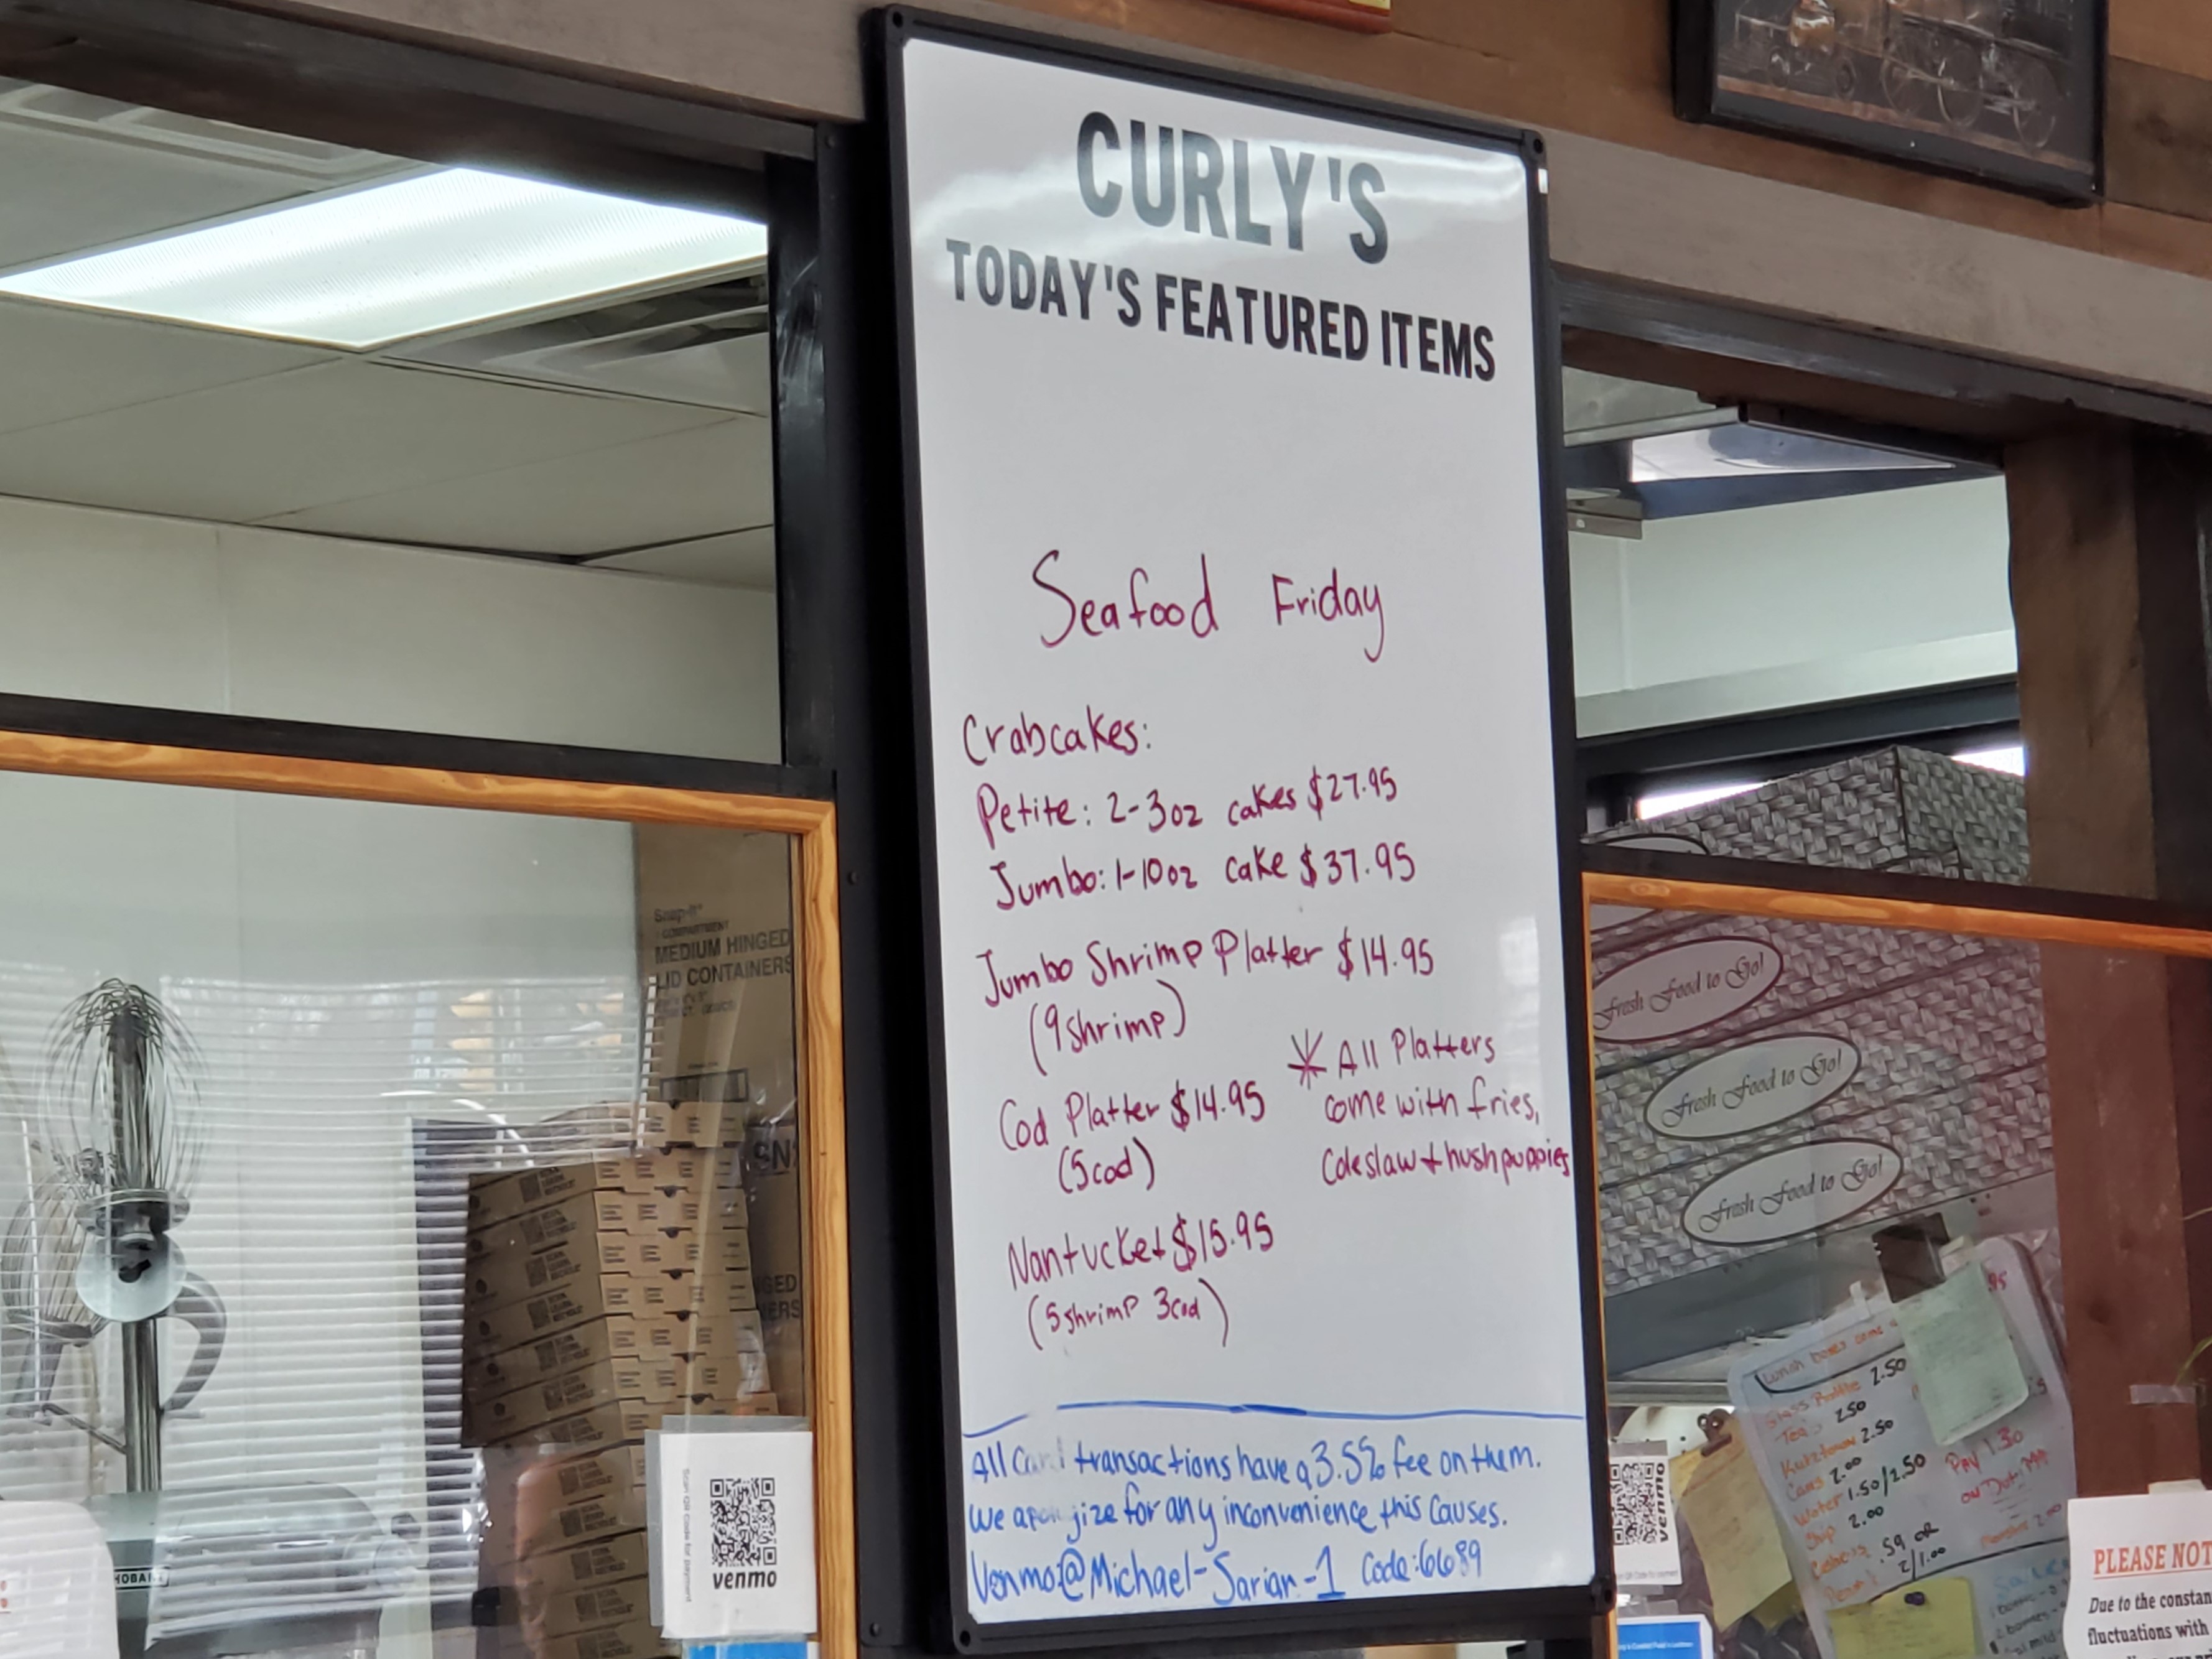 CURLY'S
TODAY'S FEATURED ITEMS
Seafood Friday
Crabcakes:
Petite: 2-3oz cakes $27.95
Jumbo: 1-10oz cake $37.95
Jumbo Shrimp Platter $14.95
(9 shrimp)
Cod Platter $14.95
(5 cod)
* All Platters
come with fries,
Coleslaw + hushpuppies
Nantucket $15.95
(5 shrimp 3 cod)
All Card transactions have a 3.5% fee on them.
We apologize for any inconvenience this causes.
Venmo:@Michael-Sarian-1 Code:6689
Snap-it
COMPARTMENT
MEDIUM HINGED
LID CONTAINERS
HOBART
Scan QR code for payment
venmo
Fresh Food to Go!
Fresh Food to Go!
Fresh Food to Go!
Lunch boxes come
Glass Bottle 2.50
Tea 2.50
Kutztown 2.50
Cans 2.00
Water 1.50/2.50
2.00
.59 OR
2/1.00
venmo
PLEASE NOT
Due to the constan
fluctuations with